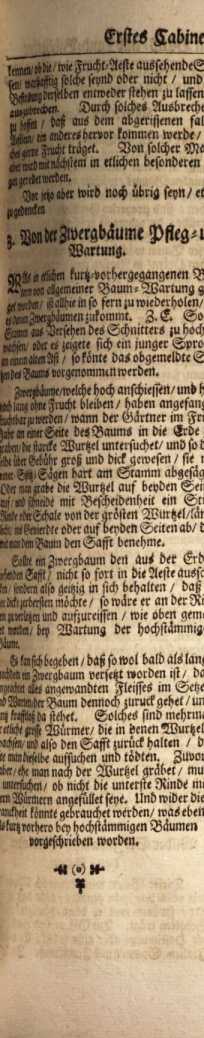 Erstes Cabine
kennen / ob die / wie Frucht-Aeste aussehende S
sen / warhafftig solche seynd oder nicht / und
derselben entweder stehen zu lassen
auszubrechen. Durch solches Ausbreche
zu hoffen / daß aus dem abgerissenen fal
ein anderes hervor kommen werde /
gerne Frucht träget. Von solcher Ma
aber wird mit nächstem in etlichen besonderen
geredet werden.
Vor jetzo aber wird noch übrig seyn / et
zu gedencken
3. Von der Zwergbäume Pfleg- u
Wartung.
Was in etlichen kurtz-vorhergegangenen B
von allgemeiner Baum-Wartung g
worden / ist allhie in so fern zu wiederholen /
Zwergbäumen zukommt. Z. E. So
Stamm aus Versehen des Schnitters zu hoch
wachsen / oder es zeigete sich ein junger Spro
an einem alten Ast / so könte das obgemeldte S
des Baums vorgenommen werden.
Zwergbäume / welche hoch anschiessen / und h
noch lang ohne Frucht bleiben / haben angefang
fruchtbar zu werden / wann der Gärtner im Fr
an einer Seite des Baums in die Erde
graben / die starcke Wurtzel untersuchet / und so d
über Gebühr groß und dick gewesen / sie m
einer Spitz-Sägen hart am Stamm abgesäg
Oder man grabe die Wurtzel auf beyden Sei
auf / und schneide mit Bescheidenheit ein St
Rinde oder Schale von der grösten Wurtzel / län
ins Gevierdte oder auf beyden Seiten ab / d
man dem Baum den Safft benehme.
Sollte ein Zwergbaum den aus der Erd
Safft / nicht so fort in die Aeste aussc
sondern also geitzig in sich behalten / daß
dick zerbersten möchte / so wäre er an der Ri
zu zerritzen und aufzureissen / wie oben geme
worden / bey Wartung der hochstämmig
Bäume.
Es kan sich begeben / daß so wol bald als lang
nachdem ein Zwergbaum versetzt worden ist / da
alles angewandten Fleisses im Setze
Warten der Baum dennoch zuruck gehet / un
krafftloß da stehet. Solches sind mehrma
etliche grosse Würmer / die in denen Wurtzel
wachsen / und also den Safft zurück halten / d
man dieselbe aufsuchen und tödten. Zuvor
aber / ehe man nach der Wurtzel gräbet / mu
untersuchen / ob nicht die unterste Rinde m
Würmern angefüllet seye. Und wider die
Kranckheit könnte gebrauchet werden / was eben
kurtz vorhero bey hochstämmigen Bäumen
vorgeschrieben worden.